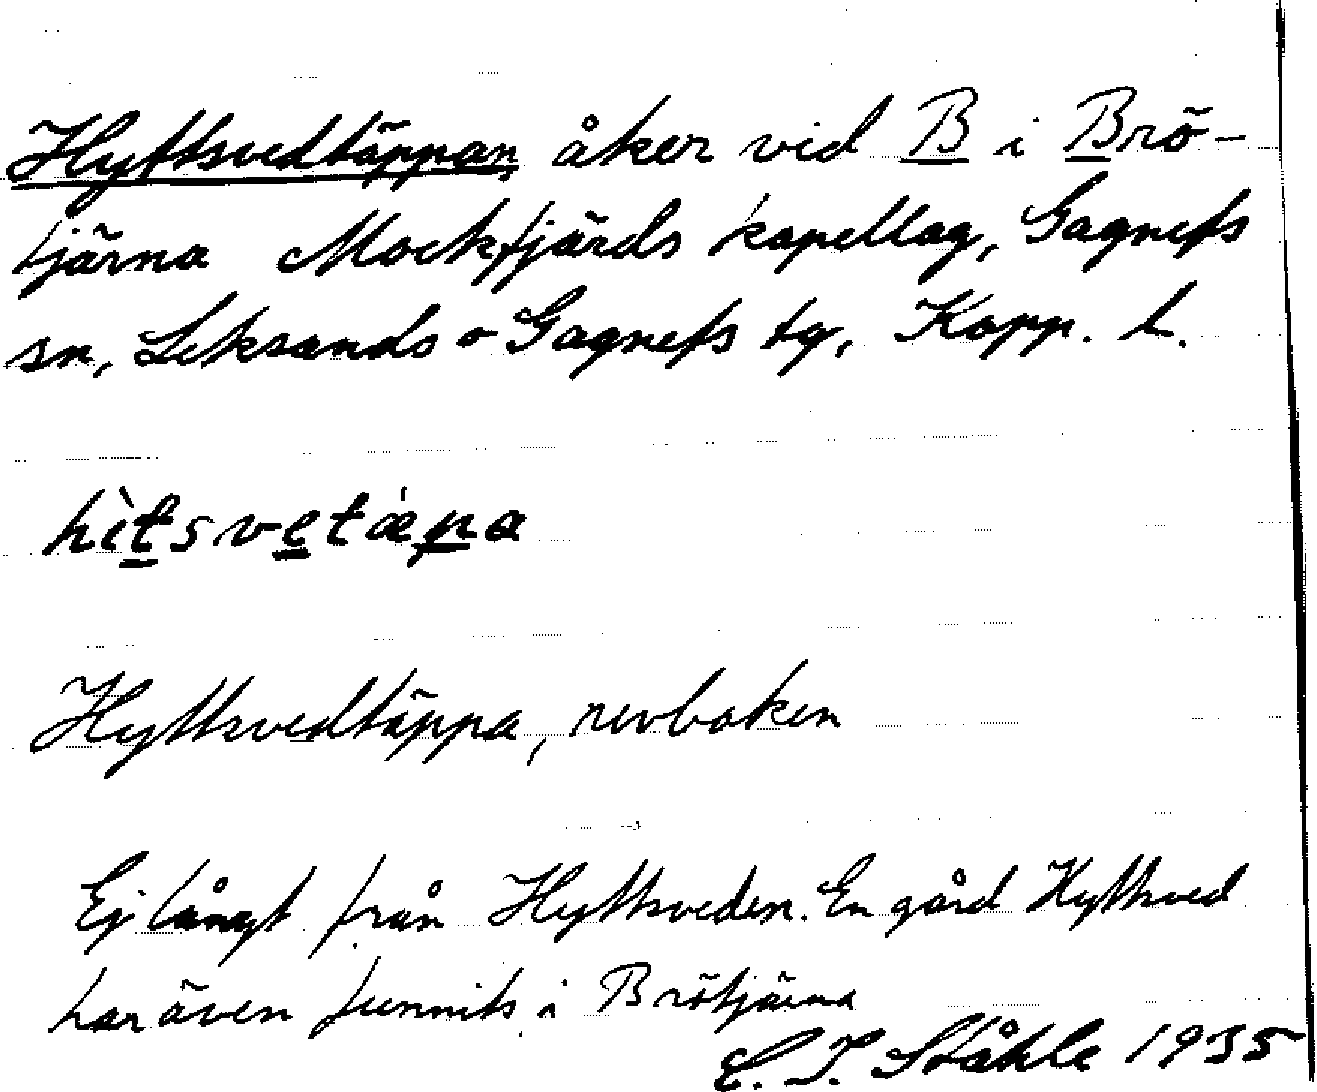 Hyttsvedtäppan, åker vid B i Brö-
tjärna Mockfjärds kapellag, Gagnefs
sn, Leksands o Gagnefs tg, Kopp. l.
hìtsvetǽpa
Hyttsvedtäppa, revboken
Ej långt från Hyttsveden. En gård Hyttsved
har även funnits i Brötjärna
C. I. Ståhle 1935